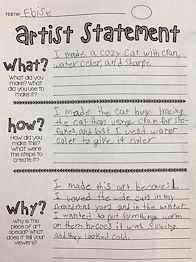 Name Eloise
Artist Statement
What?
What did you make? What did you use to make it?
I made a cozy Cat with cran,
water coler, and sharpe
how?
How did you make this? What were the steps to create it?
I made the cat buy tracing
the cat than useing cran for sno-
flakes and last I used water
coler to give it culer
Why?
Why is the piece of art special? What does it tell your viewers?
I made this art becaves I
loved the wild cats in my
grandmas yard and in the winter
I wanted to put sumthing worm
on them becaes it was snowing
and they looked cold.